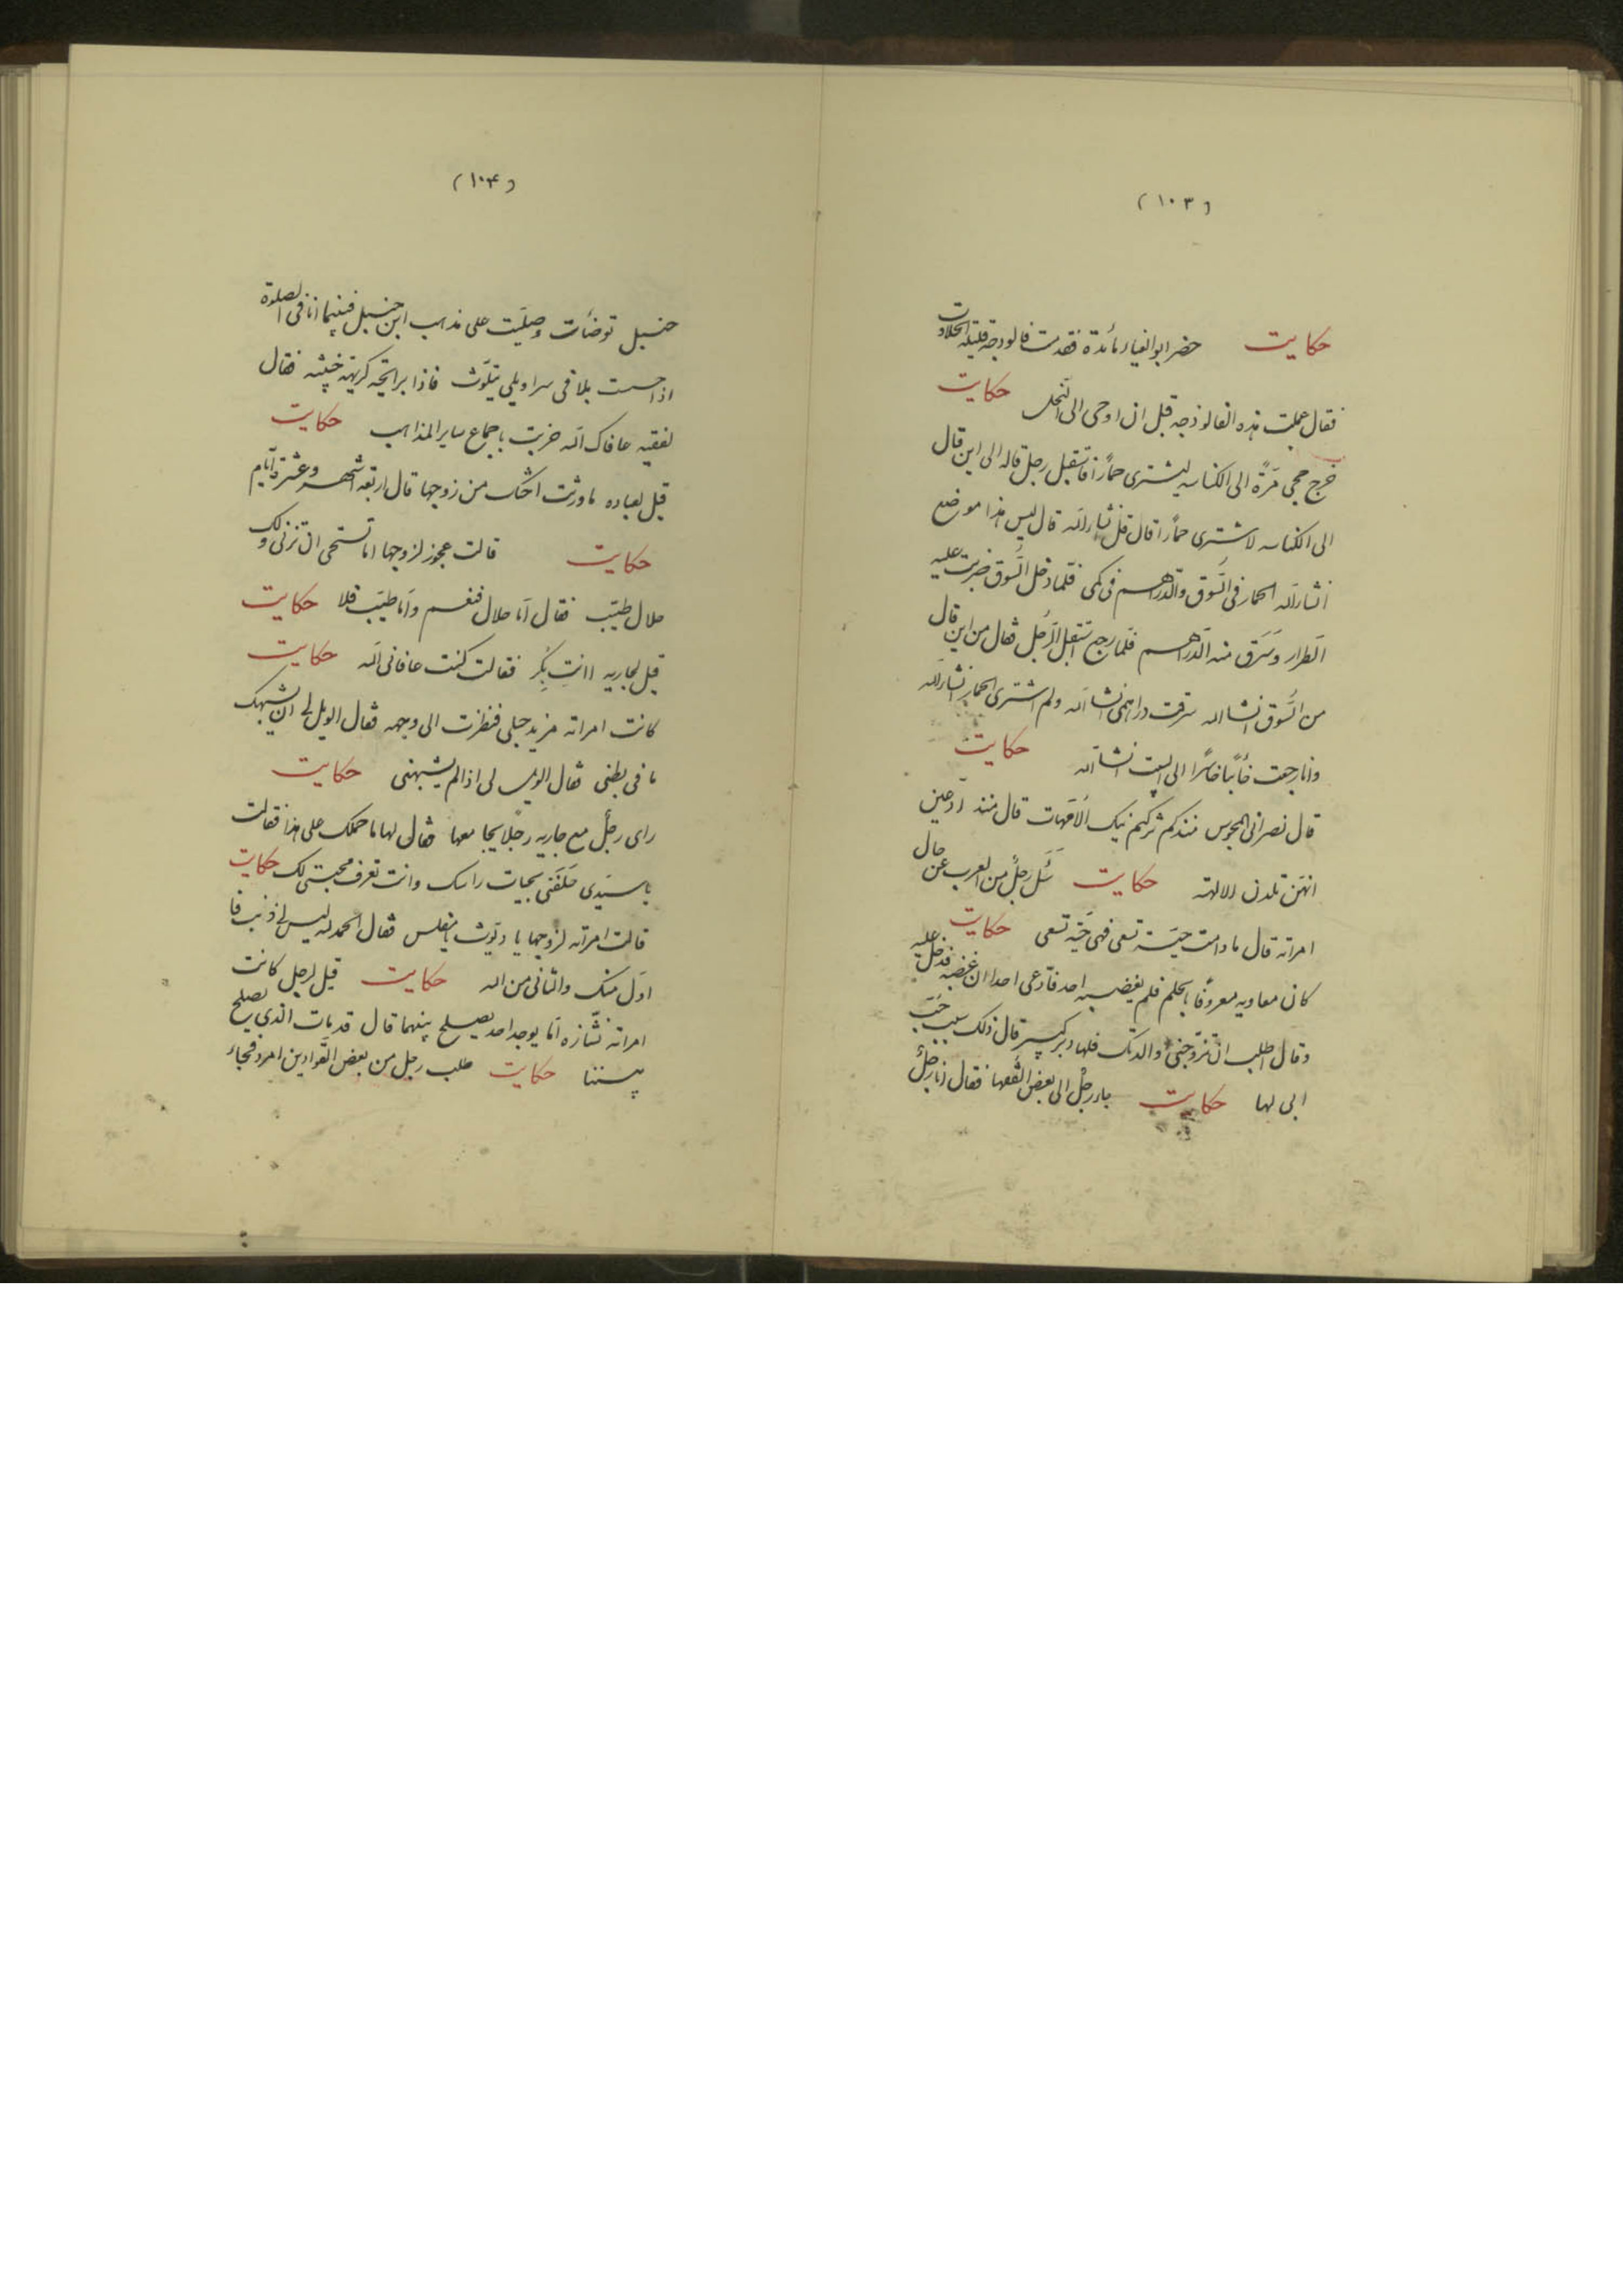 (۱۰۳)
حکایت حضر ابو العیناء مائدة فقدمت فالوذجة قلیلة الحلاوت
فقال عملت هذه الفالوذجة قبل ان اوحی الی النّحل حکایت
خرج جحی مَرّةً الی الکناسه لیشتری حمارًا فاستقبل رجل قاله الی این قال
الی الکناسه لاشتری حمارًا قال قل انشاراللّه قال لیس هذا موضع
انشاراللّه الحمار فی السّوق والدّراهم فی کمی فلمّا دخل السّوق ضربت علیه
الطّرار وسَرَق منه الدّراهم فلمّا رجع استقبل الرّجل فقال من این قال
من السّوق انشا الله سرقت دراهمی انشا الله ولم اشتری الحمار انشاراللّه
وانا رجعت خائبًا خاسرًا الی البیت انشا اللّه حکایت
قال نصرانی لمجوس منذکم ترکتم نیک الامّهات قال منذ ادّعین
انهنّ تلدن الالهة حکایت سُئل رجلٌ من العرب عن حال
امراته قال مادامت حیّة تسعی فهی حیّة تسعی حکایت
کان معاویه معروفًا بالحلم فلم یغضبه احد فادّعی احد ان اغضبه فدخل علیه
وقال اطلب ان تزوّجنی والدتک فلها دبر کبیر قال ذلک سبب حُبّ
ابی لها حکایت جاء رجلٌ الی بعض الفقها فقال انا رجلٌ
(۱۰۴)
حنبل توضّأت وصلّیت علی مذهب ابن حنبل فبینما انا فی الصلوة
اذ احسست بللا فی سراویلی یتلوّث فاذا برایحة کریهة خبیثه فقال
لفقیه عافاک الله خریت باجماع سایر المذاهب حکایت
قیل لعباده ماورثت اختک من زوجها قال اربعة اشهر وعشرة ایّام
حکایت قالت عجوز لزوجها اما تستحی ان تزنی ولک
حلال طیّب فقال امّا حلال فنعم وامّا طیّب فلا حکایت
قیل لجاریه ا انتِ بِکُر فقالت کنت عافانی الله حکایت
کانت امراة مزید حبلی فنظرت الی وجهه فقال الویل لی ان یشبهک
ما فی بطنی فقال الویل لی اذا لم یشبهنی حکایت
رای رجلٌ مع جاریه رجلًا یجامعها فقال لها ما حملک علی هذا فقالت
یا سیّدی حلّفنی بحیات راسک وانت تعرف محبّتی لک حکایت
قالت امراته لزوجها یا دیّوث یا مفلس فقال الحمد لله لیس لی ذنب فا
اوّل منک والثّانی من الله حکایت قیل لرجل کانت
امراته نشّازه امّا یوجد احد یصلح بینهما قال قد مات الّذی یصلح
بیننا حکایت طلب رجل من بعض القوّادین امرد فجاءَ